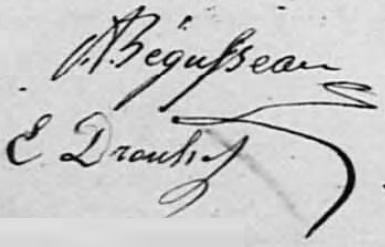 A Bégusseau
E Drouhet